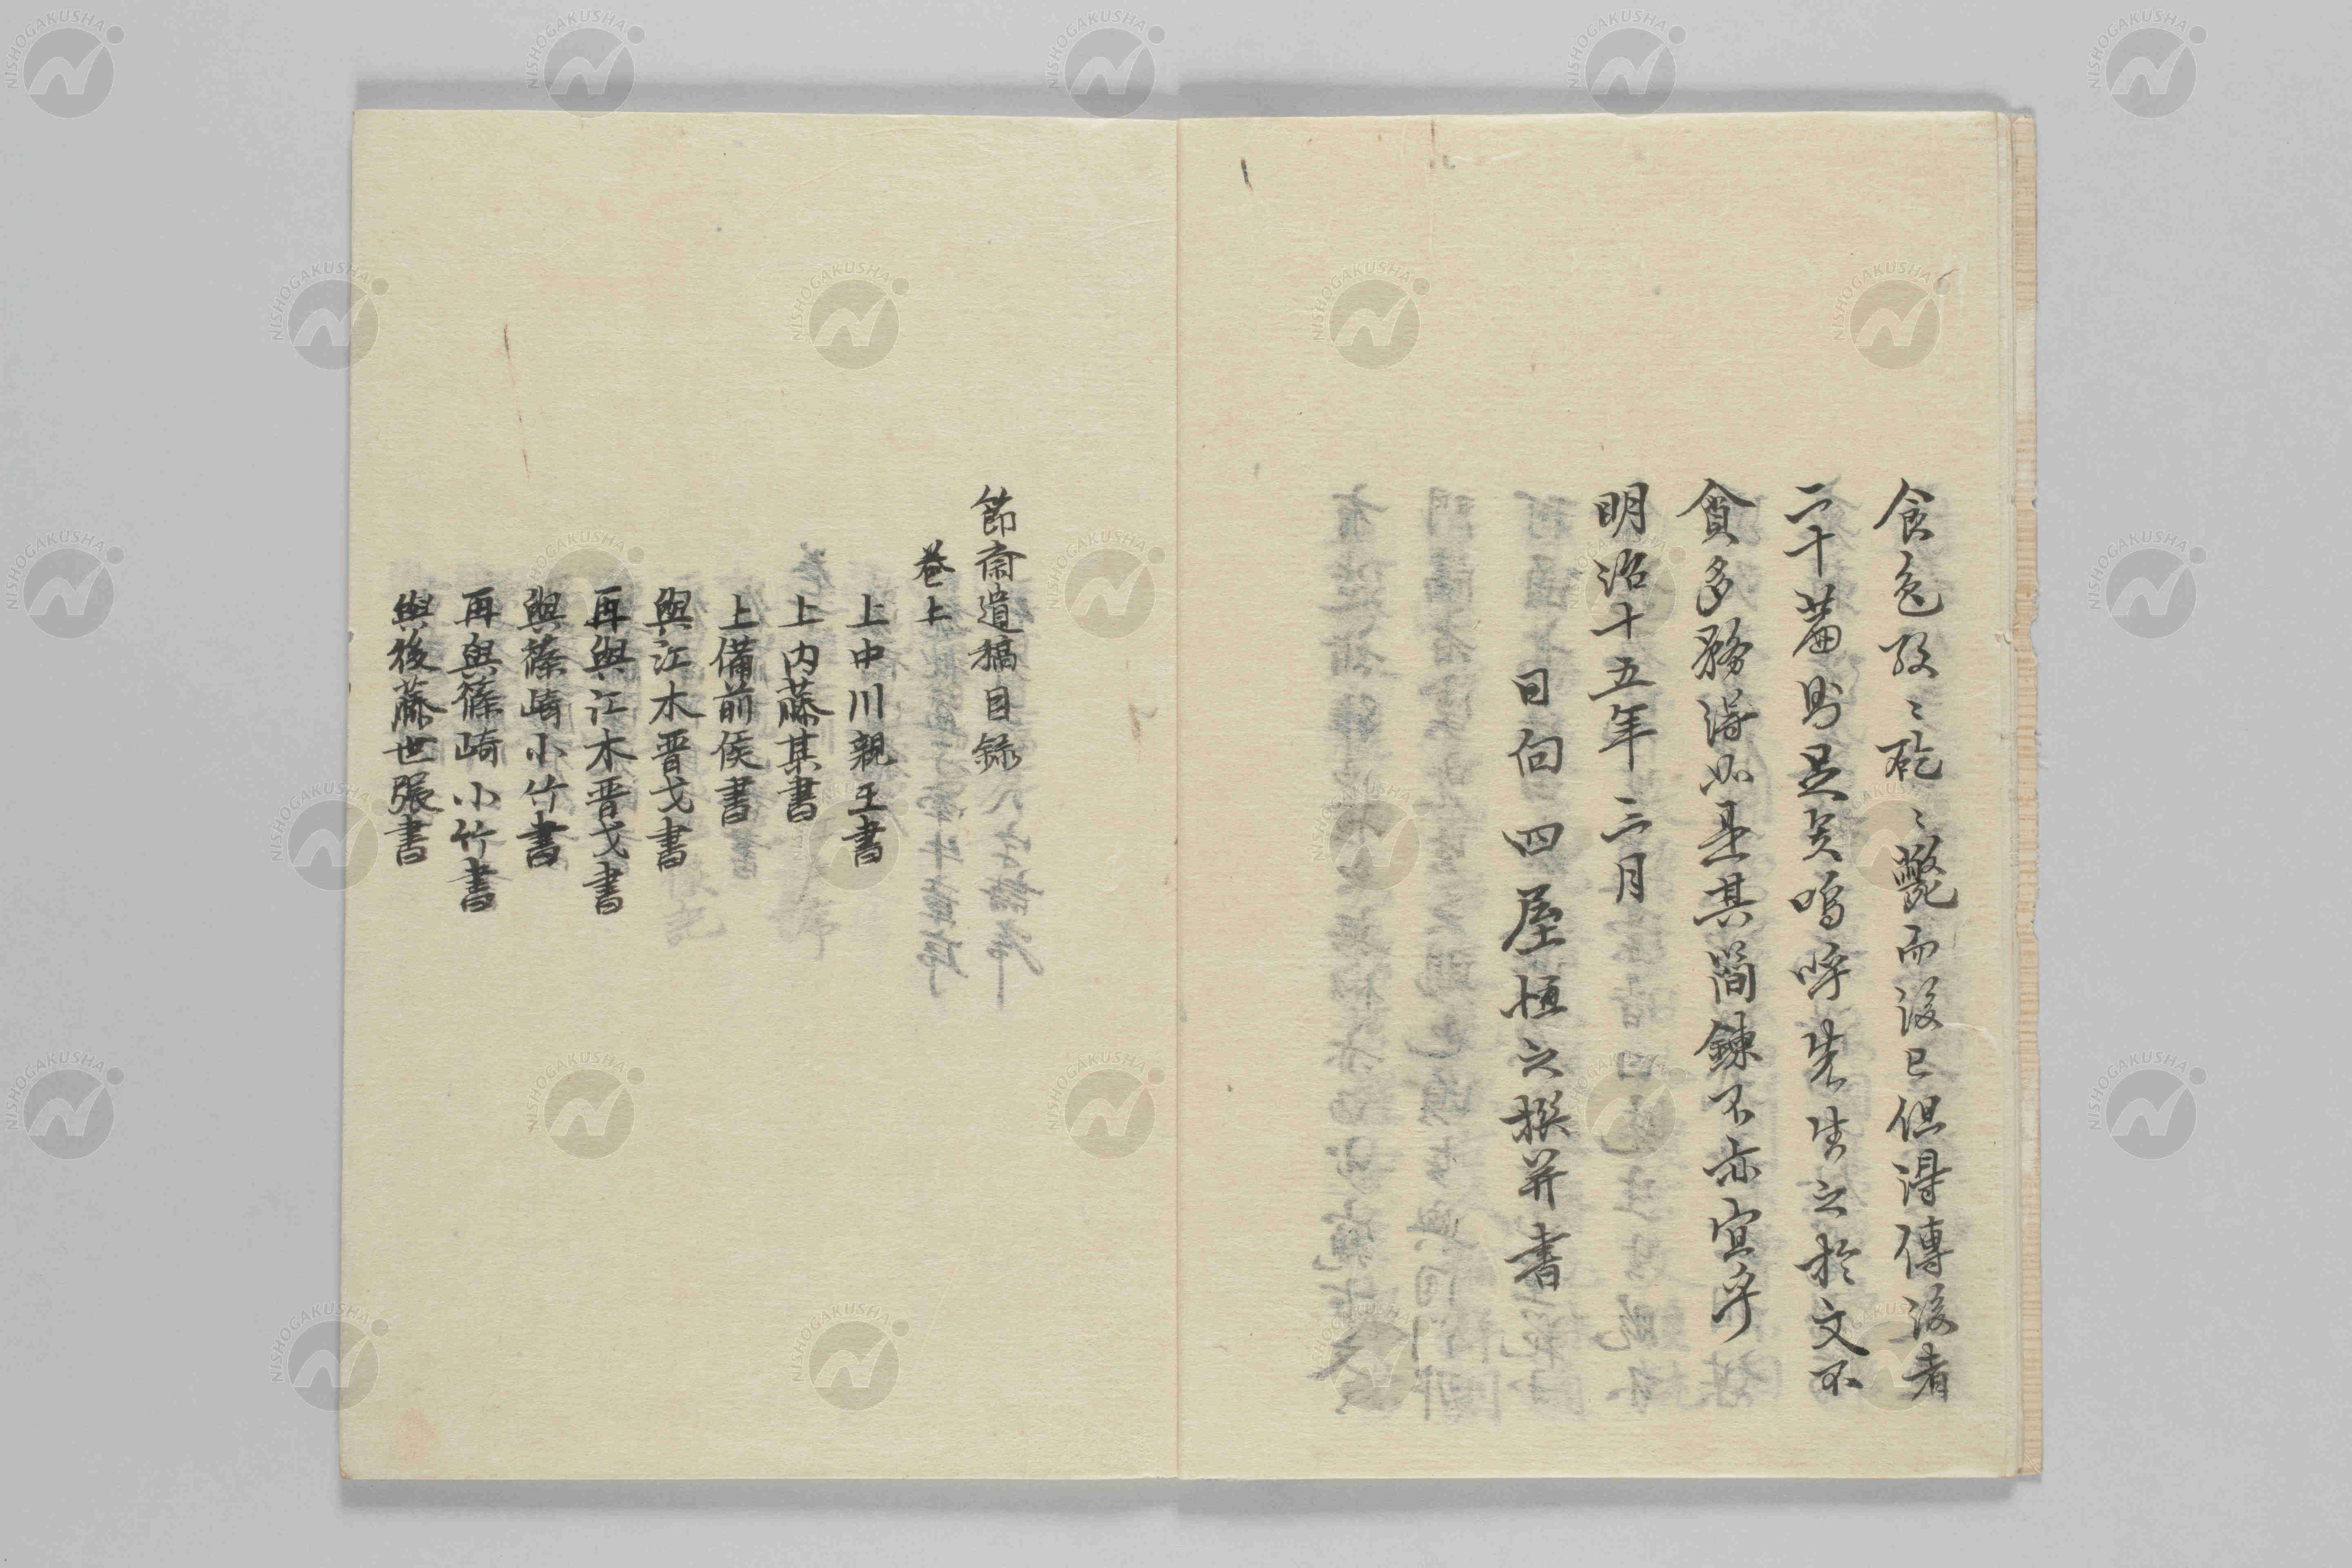 食色孜〻矻〻斃而後已但得傳後者
二十篇則足矣嗚呼先生之於文不
貪多務得如是其簡鍊不亦宜乎
明治十五年三月
日向四屋恒之撰并書
節齋遺稿目録
卷上
上中川親王書
上内藤某書
上備前侯書
與江木晋戈書
再與江木晋戈書
與篠崎小竹書
再與篠崎小竹書
與後藤世張書
NISHOGAKUSHA